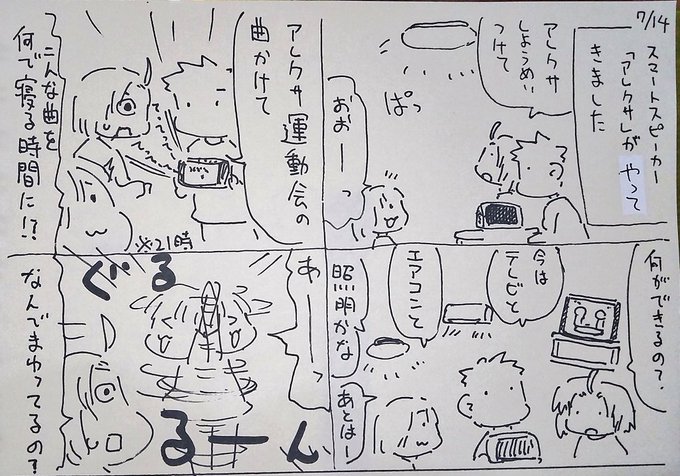 7/14
スマートスピーカー
「アレクサ」が やって
きました
アレクサ
しょうめい
つけて
ぱっ
おおーっ
何ができるの?
今は
テレビと
エアコンと
照明かな
あとはー
アレクサ運動会の
曲かけて
こんな曲を
何で寝る時間に!?
※21時
あーー
ぐる
るーん
なんでまわってるの?